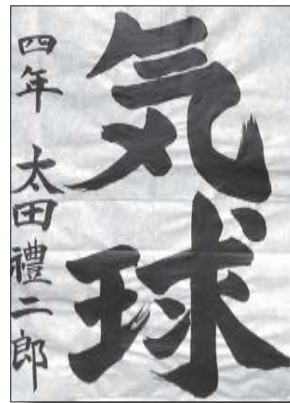 気球
四年 太田禮二郎